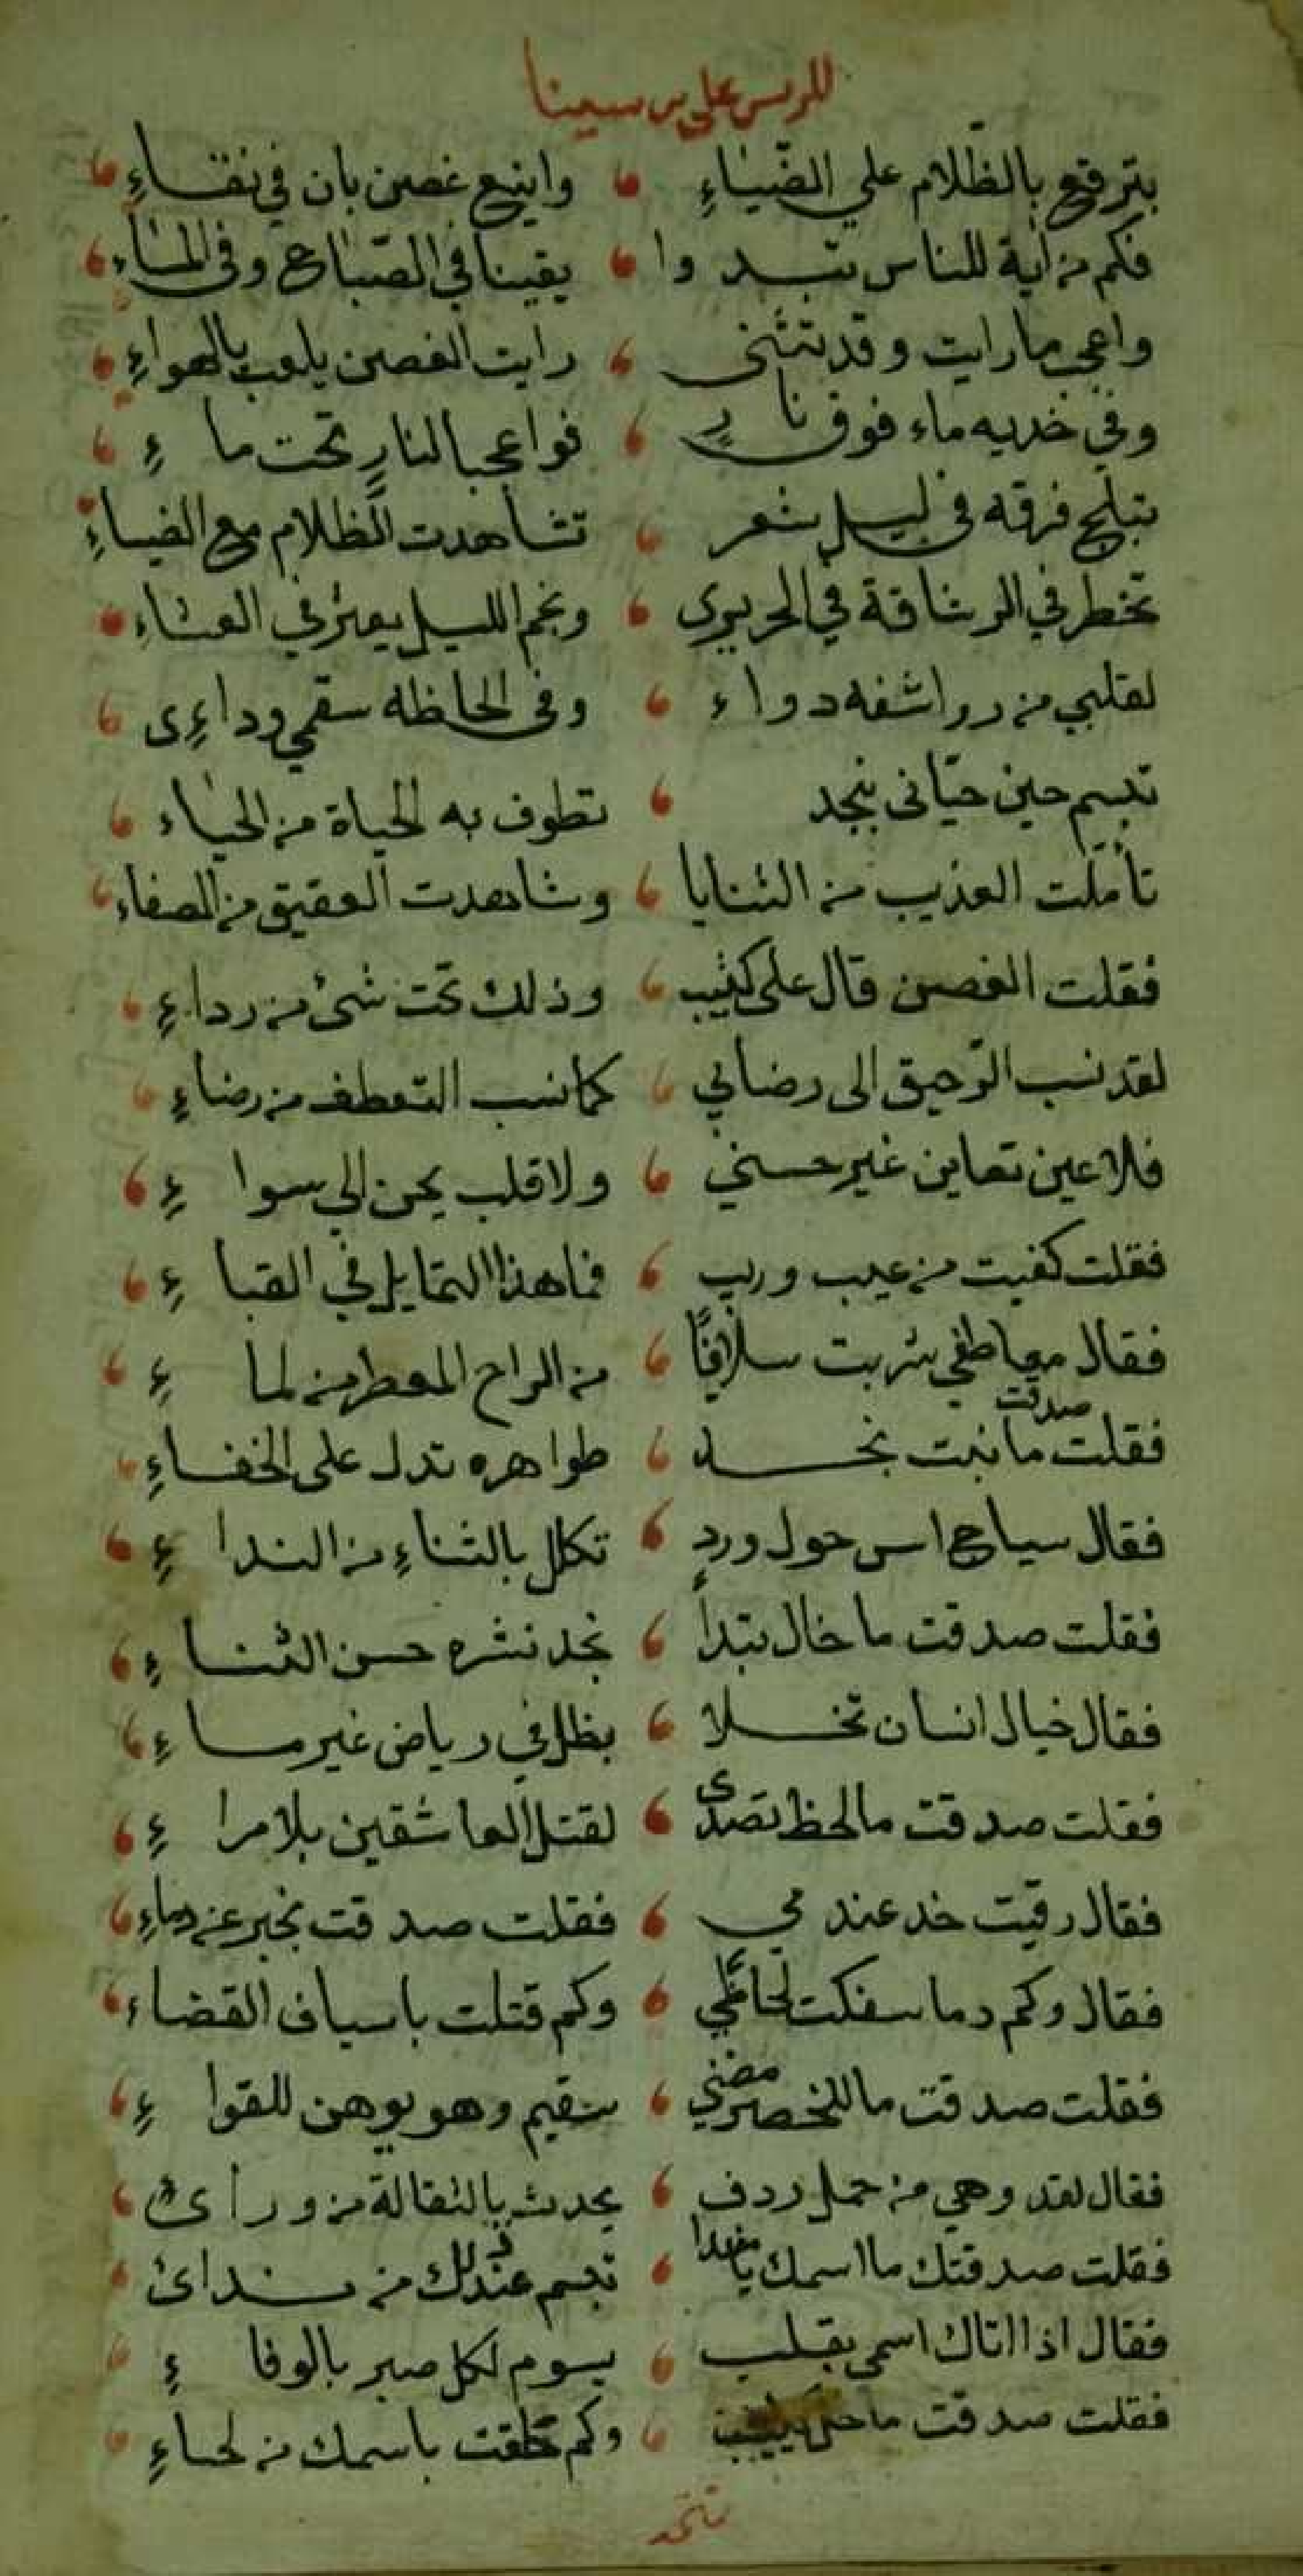 للريس علي بن سينا
بترقع بالظلام علي الضياءِ واينع غصن بان في نقاءِ
فكم من اية للناس تبدوا يقينا في الصباح وفي المساء
واعجب ما رايت وقد تثنى رايت الغصن يلعب بالهواءِ
وفي خديه ماء فوق نارٍ فواعجبا لنارٍ تحت ماءِ
تبلج فرقه في ليل شعر تشاهدت الظلام مع الضياءِ
تخطر في الرشاقة في الحريري ونجم الليل يعثر في العشاء
لقلبي من رواشفه دواء وفى الحاظه سقمي وداءى
تبسم حين حيّانى بنجد تطوف به الحياة من الحياء
تأملت العذيب من الثنايا وشاهدت العقيق من الصفاء
فقلت الغصن قال على كثيب وذلك تحت شئ من رداءِ
لقد نسب الرّحيق الى رضابي كما نسب التعطف من رضاءِ
فلا عين تعاين غير حسني ولا قلب يحن الي سواءِ
فقلت كفيت من عيب وريب فما هذا التمايل في القباءِ
فقال معاطفي شربت سلافًا من الراح المعطر من لماءِ
فقلت صدقت ما نبت بخد طواهره تدل على الخفاءِ
فقال سياج اس حول وردٍ تكلل بالثناءِ من النداءِ
فقلت صدقت ما خال تبدأ نجد نشره حسن الثناءِ
فقال خيال انسان تخلا بظل في رياض غير ماءِ
فقلت صدقت ما لحظ تصدى لقتل العاشقين بلا مراءِ
فقال رقيت خد عند مي فقلت صدقت بخبر عن دماءِ
فقال وكم دما سفكت لحاظي وكم قتلت باسياف القضاء
فقلت صدقت ما للخصر مضني سقيم وهو يوهن للقواءِ
فقال لقد وهي من حمل ردف يحدث بالثقالة من ورأئ
فقلت صدقتك ما اسمك يا تبسم عند ذلك من ندائ
فقال اذا اتاك اسمى بقلب يسوم لكل صبر بالوفاءِ
فقلت صدقت ما وكم باسمك من لحاءِ
تمت